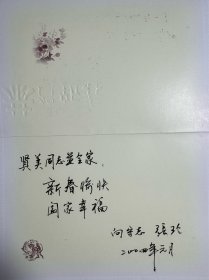 贤美同志并全家
新春愉快
阖家幸福
向守志 张玲
二〇〇四年元月